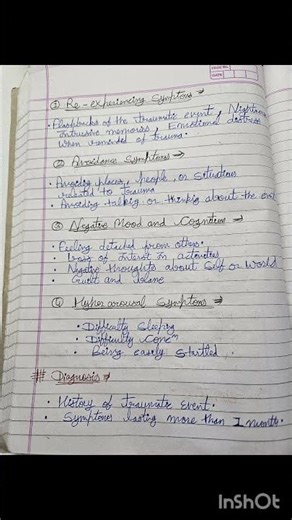 ① Re-experiencing Symptoms →
• Flashbacks of the traumatic event, Nightmare
Intrusive memories, Emotional distress
when reminded of trauma.
② Avoidance Symptoms →
• Avoiding places, people, or situations
related to trauma
• Avoiding talking or thinking about the eve
③ Negative Mood and Cognition →
• Feeling detached from others.
• Loss of interest in activities
• Negative thoughts about Self or World
• Guilt and blame
④ Hyperarousal Symptoms →
• Difficulty Sleeping
• Difficulty Concⁿ
• Being easily startled.
## Diagnosis →
• History of Traumatic Event.
• Symptoms lasting more than 1 month.
InShOt